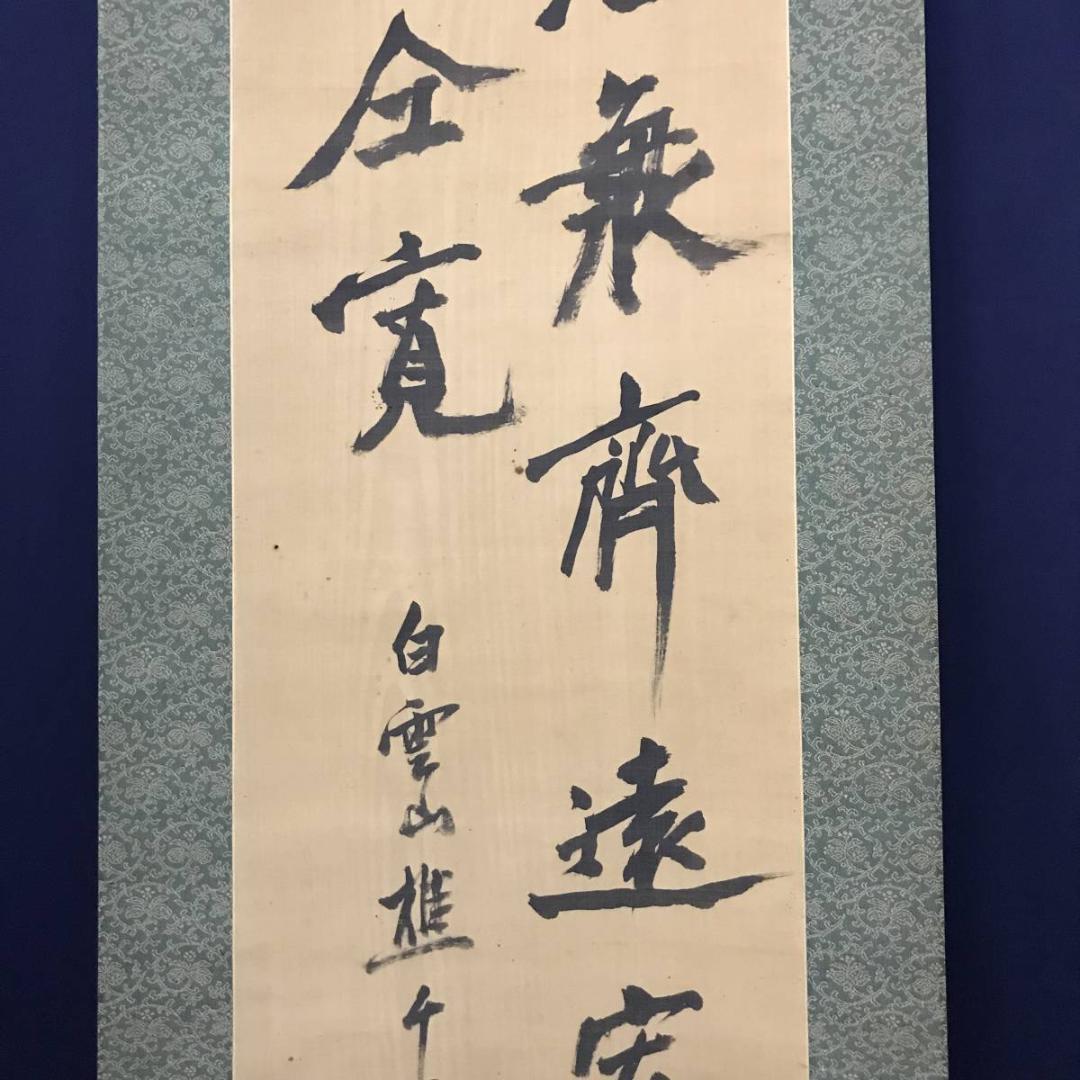 兼齊遠
全寛
白雲山樵